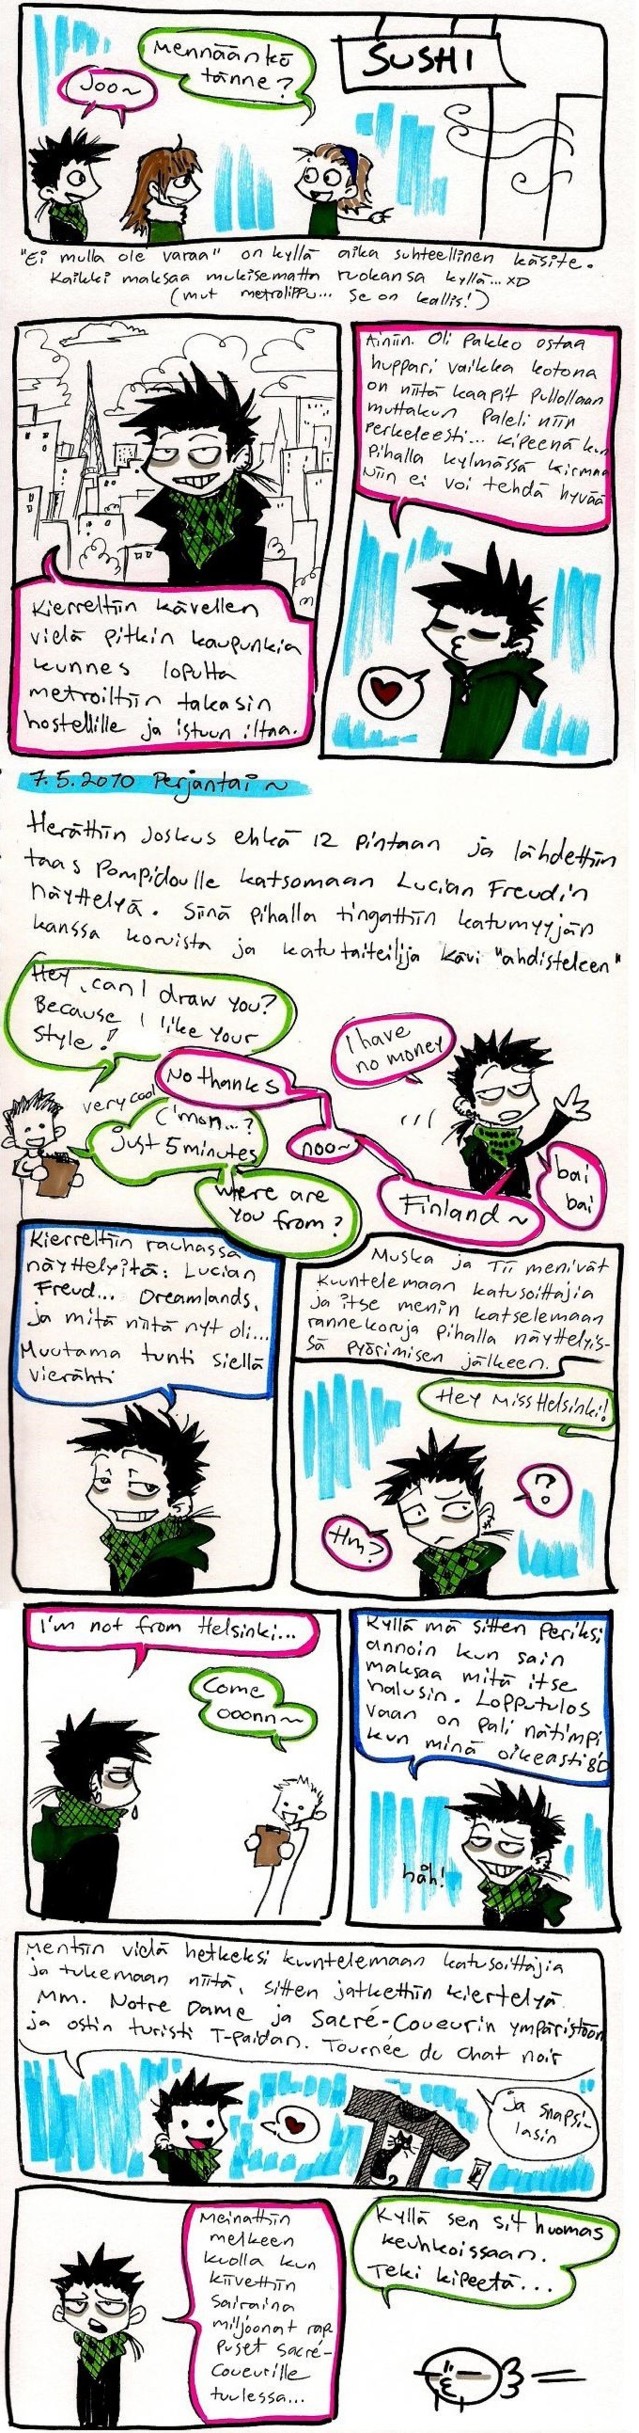 SUSHI
Mennäänkö
tänne?
Joo~
"Ei mulla ole varaa" on kyllä aika suhteellinen käsite.
Kaikki maksaa mukisematta ruokansa kyllä... XD
(mut metrolippu... se on kallis!)
Kierreltiin kävellen
vielä pitkin kaupunkia
kunnes lopulta
metroiltiin takasin
hostellille ja istuun iltaa.
Ainiin. Oli pakko ostaa
huppari vaikka kotona
on niitä kaapit pullollaan
muttakun paleli niin
perkeleesti... kipeenä kun
pihalla kylmässä kirmaa
niin ei voi tehdä hyvää
7.5.2010 Perjantai~
Herättiin joskus ehkä 12 pintaan ja lähdettiin
taas Pompidoulle katsomaan Lucian Freudin
näyttelyä. Siinä pihalla tingattiin katumyyjän
kanssa korvista ja katutaiteilija kävi "ahdisteleen"
Hey, can I draw you?
Because I like your
style!
very cool
No thanks
C'mon...?
just 5 minutes
noo~
Where are
you from?
Finland~
I have
no money
bai
bai
Kierreltiin rauhassa
näyttelyitä: Lucian
Freud... Dreamlands,
ja mitä niitä nyt oli...
Muutama tunti siellä
vierähti
Muska ja Tii menivät
kuuntelemaan katusoittajia
ja itse menin katselemaan
rannekoruja pihalla näyttelyis-
sä pyörimisen jälkeen.
Hey Miss Helsinki!
?
Hm?
I'm not from Helsinki...
Come
ooonn~
Kyllä mä sitten periksi
annoin kun sain
maksaa mitä itse
halusin. Lopputulos
vaan on pali nätimpi
kun minä oikeasti 8D
häh!
Mentiin vielä hetkeksi kuuntelemaan katusoittajia
ja tukemaan niitä, sitten jatkettiin kiertelyä
mm. Notre Dame ja Sacré-Coueurin ympäristöön
ja ostin turisti T-paidan. Tournée du Chat noir
ja snapsi-
lasin
Meinattiin
melkeen
kuolla kun
kiivettiin
sairaina
miljoonat rap
puset sacré-
Coueurille
tuulessa...
Kyllä sen sit huomas
keuhkoissaan.
Teki kipeetä...